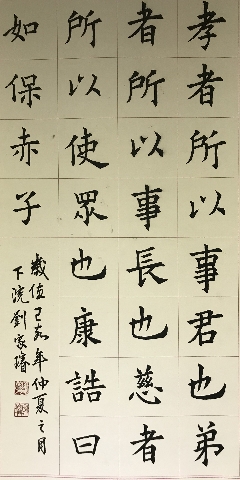 孝者所以事君也弟
者所以事長也慈者
所以使眾也康誥曰
如保赤子
歲值己亥年仲夏之月
下浣劉家璿